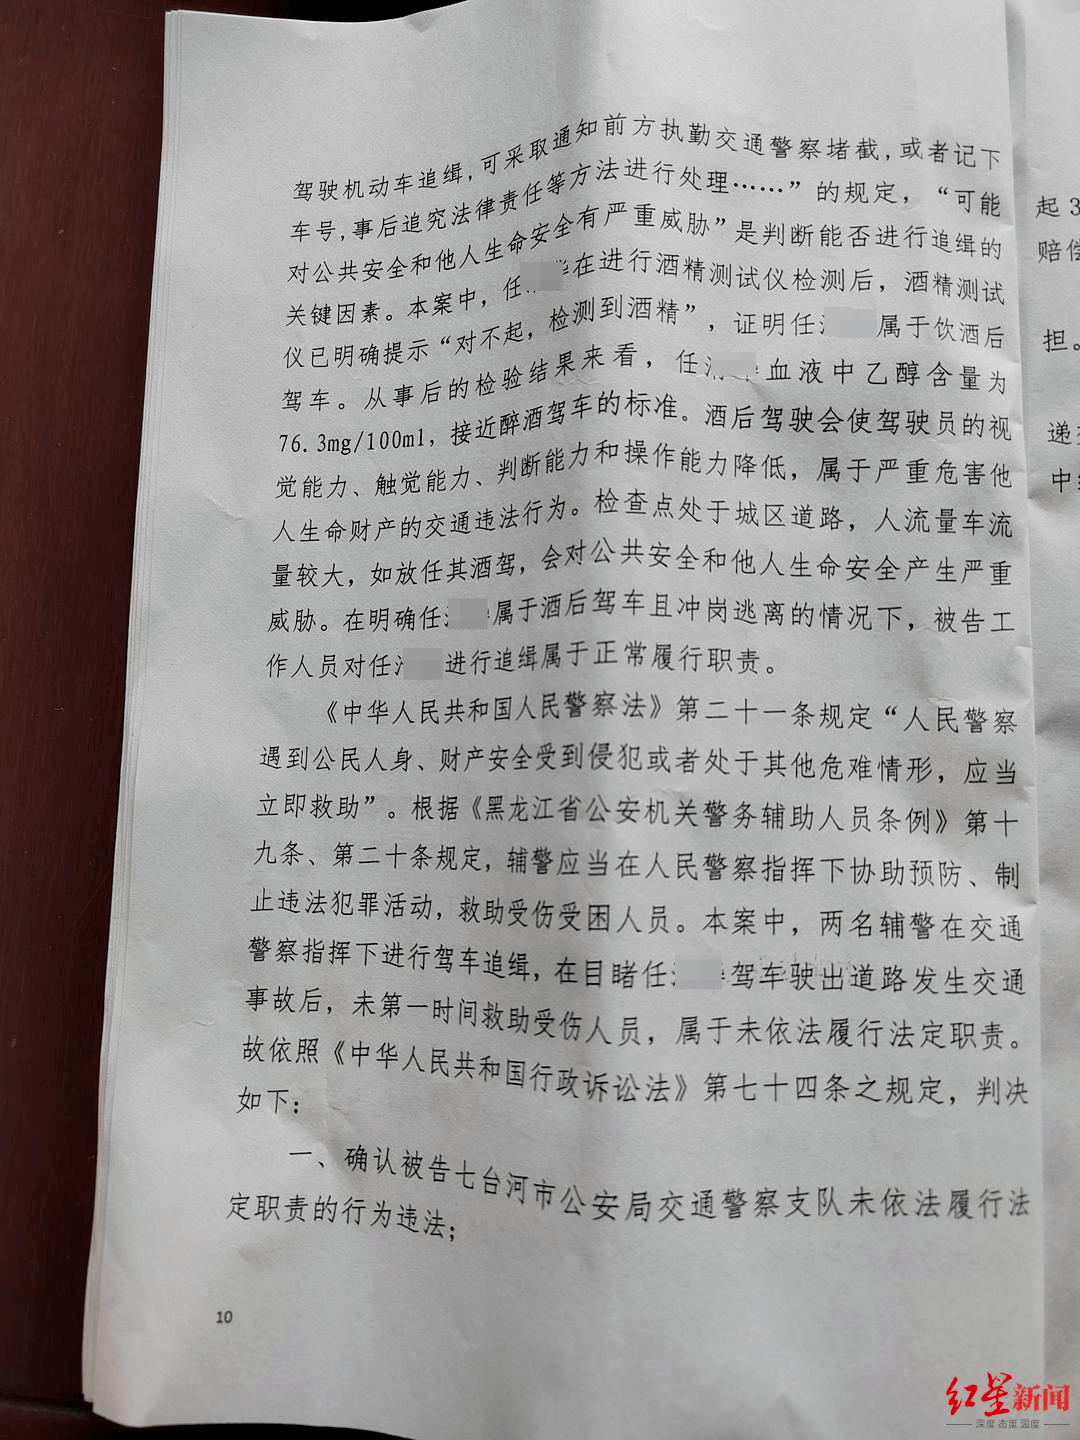 驾驶机动车追缉,可采取通知前方执勤交通警察堵截,或者记下
车号,事后追究法律责任等方法进行处理……”的规定，“可能
对公共安全和他人生命安全有严重威胁”是判断能否进行追缉的
关键因素。本案中，任 在进行酒精测试仪检测后，酒精测试
仪已明确提示“对不起，检测到酒精”，证明任 属于饮酒后
驾车。从事后的检验结果来看，任 血液中乙醇含量为
76.3mg/100ml，接近醉酒驾车的标准。酒后驾驶会使驾驶员的视
觉能力、触觉能力、判断能力和操作能力降低，属于严重危害他
人生命财产的交通违法行为。检查点处于城区道路，人流量车流
量较大，如放任其酒驾，会对公共安全和他人生命安全产生严重
威胁。在明确任 属于酒后驾车且冲岗逃离的情况下，被告工
作人员对任 进行追缉属于正常履行职责。
《中华人民共和国人民警察法》第二十一条规定“人民警察
遇到公民人身、财产安全受到侵犯或者处于其他危难情形，应当
立即救助”。根据《黑龙江省公安机关警务辅助人员条例》第十
九条、第二十条规定，辅警应当在人民警察指挥下协助预防、制
止违法犯罪活动，救助受伤受困人员。本案中，两名辅警在交通
警察指挥下进行驾车追缉，在目睹任 驾车驶出道路发生交通
事故后，未第一时间救助受伤人员，属于未依法履行法定职责。
故依照《中华人民共和国行政诉讼法》第七十四条之规定，判决
如下：
一、确认被告七台河市公安局交通警察支队未依法履行法
定职责的行为违法；
10
起3
赔偿
担。
递
中
红星新闻
深度 态度 温度